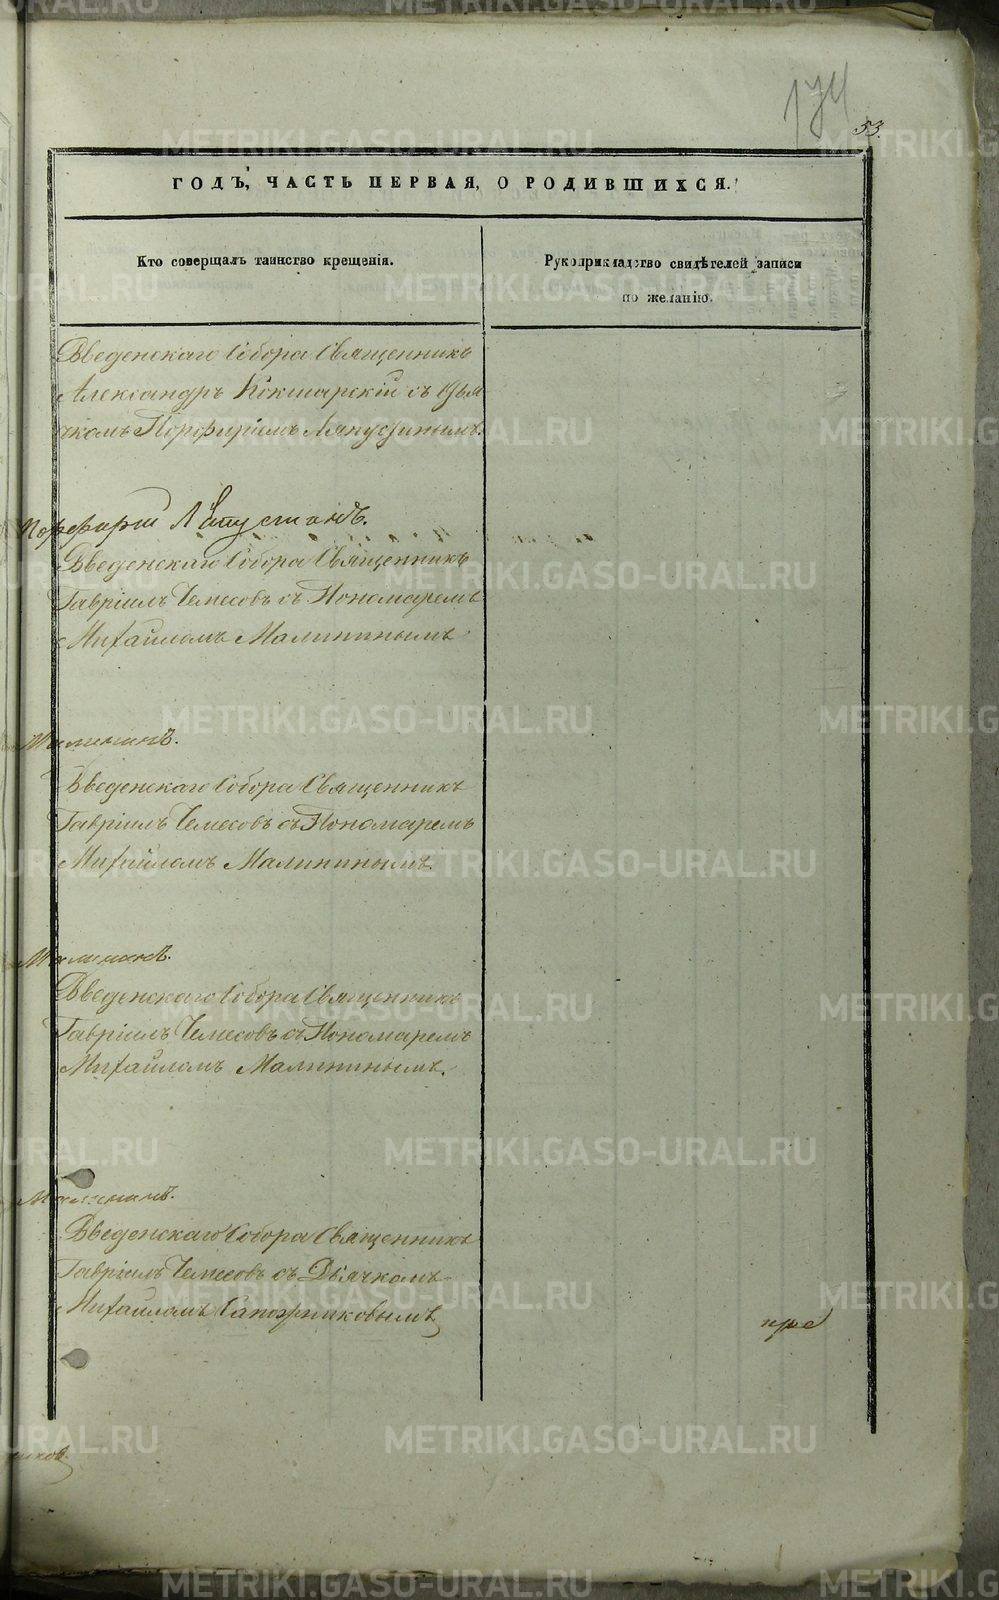 174
53.
ГОДЪ, ЧАСТЬ ПЕРВАЯ, О РОДИВШИХСЯ.
Кто совершалъ таинство крещенія.
Рукоприкладство свидѣтелей записи
по желанію.
Введенскаго Собора Священникъ
Александръ Кокшарскій съ Дья
чкомъ Порфиріемъ Ляпустинымъ.
Порфирій Ляпустинъ.
Введенскаго Собора Священникъ
Гавріилъ Чемесовъ съ Пономаремъ
Михайломъ Малининымъ
Малининъ.
Введенскаго Собора Священникъ
Гавріилъ Чемесовъ съ Пономаремъ
Михайломъ Малининымъ.
Малининъ.
Введенскаго Собора Священникъ
Гавріилъ Чемесовъ съ Пономаремъ
Михайломъ Малининымъ.
Малининъ.
Введенскаго Собора Священникъ
Гавріилъ Чемесовъ съ Дьячкомъ
Михайломъ Сапожниковымъ
пре
никовъ.
METRIKI.GASO-URAL.RU